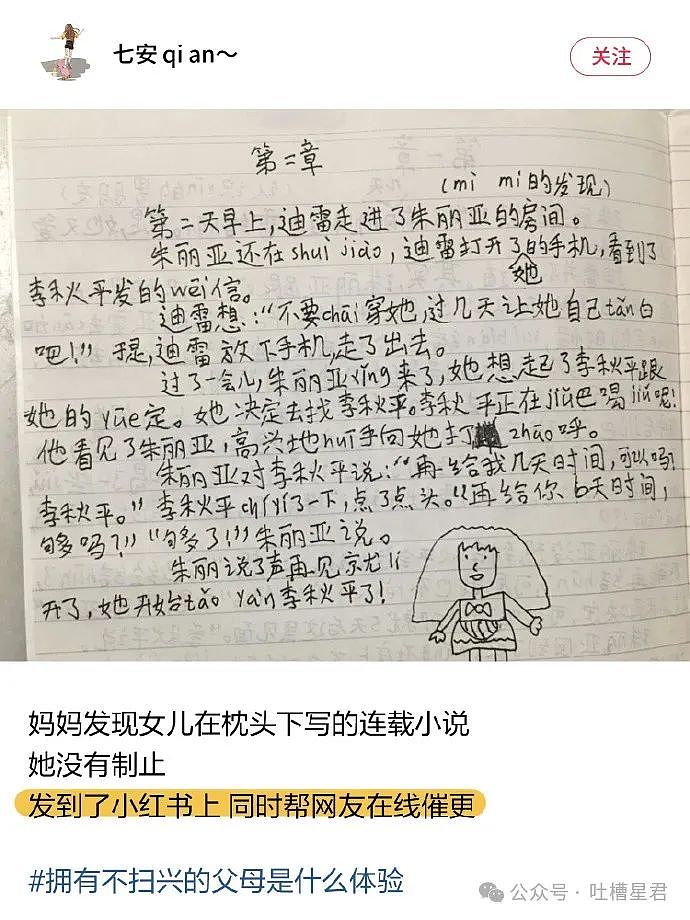 七安 qi an～
关注
第二章
(mì mì的发现)
第二天早上,迪雷走进了朱丽亚的房间。
朱丽亚还在shuì jiào,迪雷打开了她的手机,看到了
李秋平发的wēi信。
迪雷想:“不要chāi穿她,过几天让她自己tǎn白
吧!”于是,迪雷放下手机,走了出去。
过了一会儿,朱丽亚xǐng来了,她想起了李秋平跟
她的yuē定。她决定去找李秋平。李秋平正在jiǔ巴喝jiǔ呢!
他看见了朱丽亚,高兴地huī手向她打zhāo呼。
朱丽亚对李秋平说:“再给我几天时间,可以吗?
李秋平。”李秋平chí yí了一下,点了点头。“再给你6天时间,
够吗?”“够了!”朱丽亚说。
朱丽说了声再见,就
开了,她开始tǎo yàn李秋平了!
妈妈发现女儿在枕头下写的连载小说
她没有制止
发到了小红书上 同时帮网友在线催更
#拥有不扫兴的父母是什么体验
公众号·吐槽星君